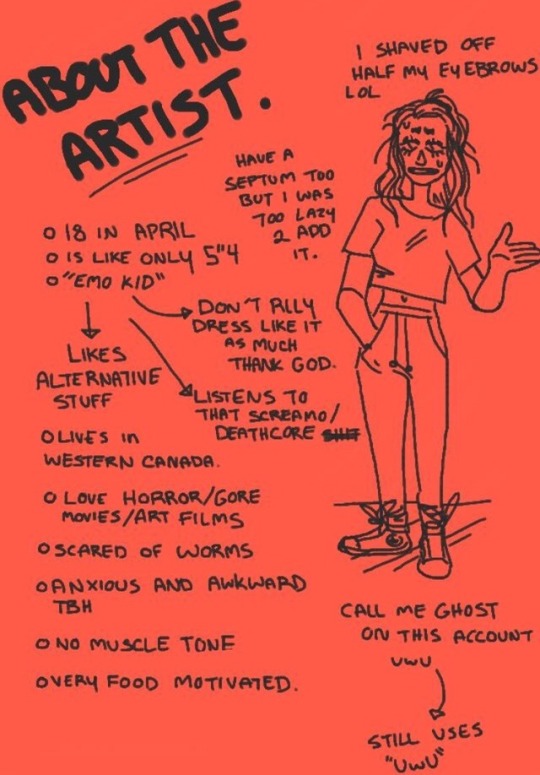 ABOUT THE
ARTIST.
I SHAVED OFF
HALF MY EYEBROWS
LOL
HAVE A
SEPTUM TOO
BUT I WAS
TOO LAZY
2 ADD
IT.
O 18 IN APRIL
O IS LIKE ONLY 5"4
O "EMO KID"
DON'T RLLY
DRESS LIKE IT
AS MUCH
THANK GOD.
LIKES
ALTERNATIVE
STUFF
LISTENS TO
THAT SCREAMO/
DEATHCORE SHIT
O LIVES in
WESTERN CANADA.
O LOVE HORROR/GORE
MOVIES/ART FILMS
O SCARED OF WORMS
O ANXIOUS AND AWKWARD
TBH
O NO MUSCLE TONE
O VERY FOOD MOTIVATED.
CALL ME GHOST
ON THIS ACCOUNT
UWU
STILL USES
"UWU"